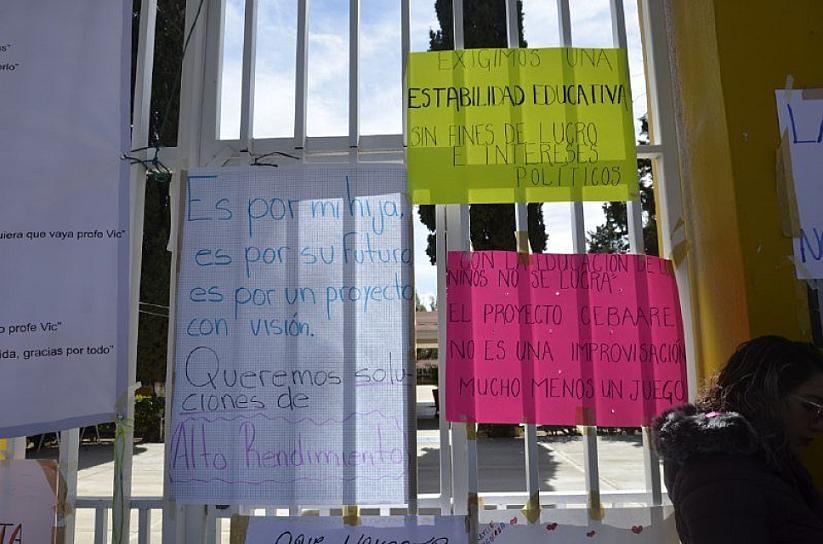 uiera que vaya profe Vic"
o profe Vic"
ida, gracias por todo"
Es por mi hija,
es por su futuro
es por un proyecto
con visión.
Queremos solu-
ciones de
Alto Rendimiento
EXIGIMOS UNA
ESTABILIDAD EDUCATIVA
SIN FINES DE LUCRO
E INTERESES
POLÍTICOS
"CON LA EDUCACIÓN DE L
NIÑOS NO SE LUCRA".
EL PROYECTO CEBAARE
NO ES UNA IMPROVISACIÓN
MUCHO MENOS UN JUEGO